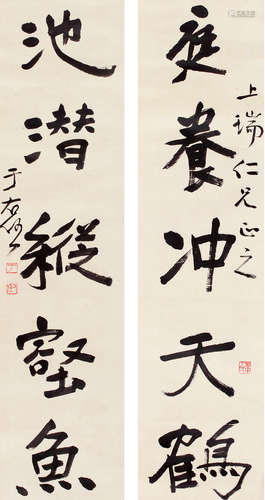 庭養冲天鶴
上瑞仁兄正之
池潜縱壑魚
于右任